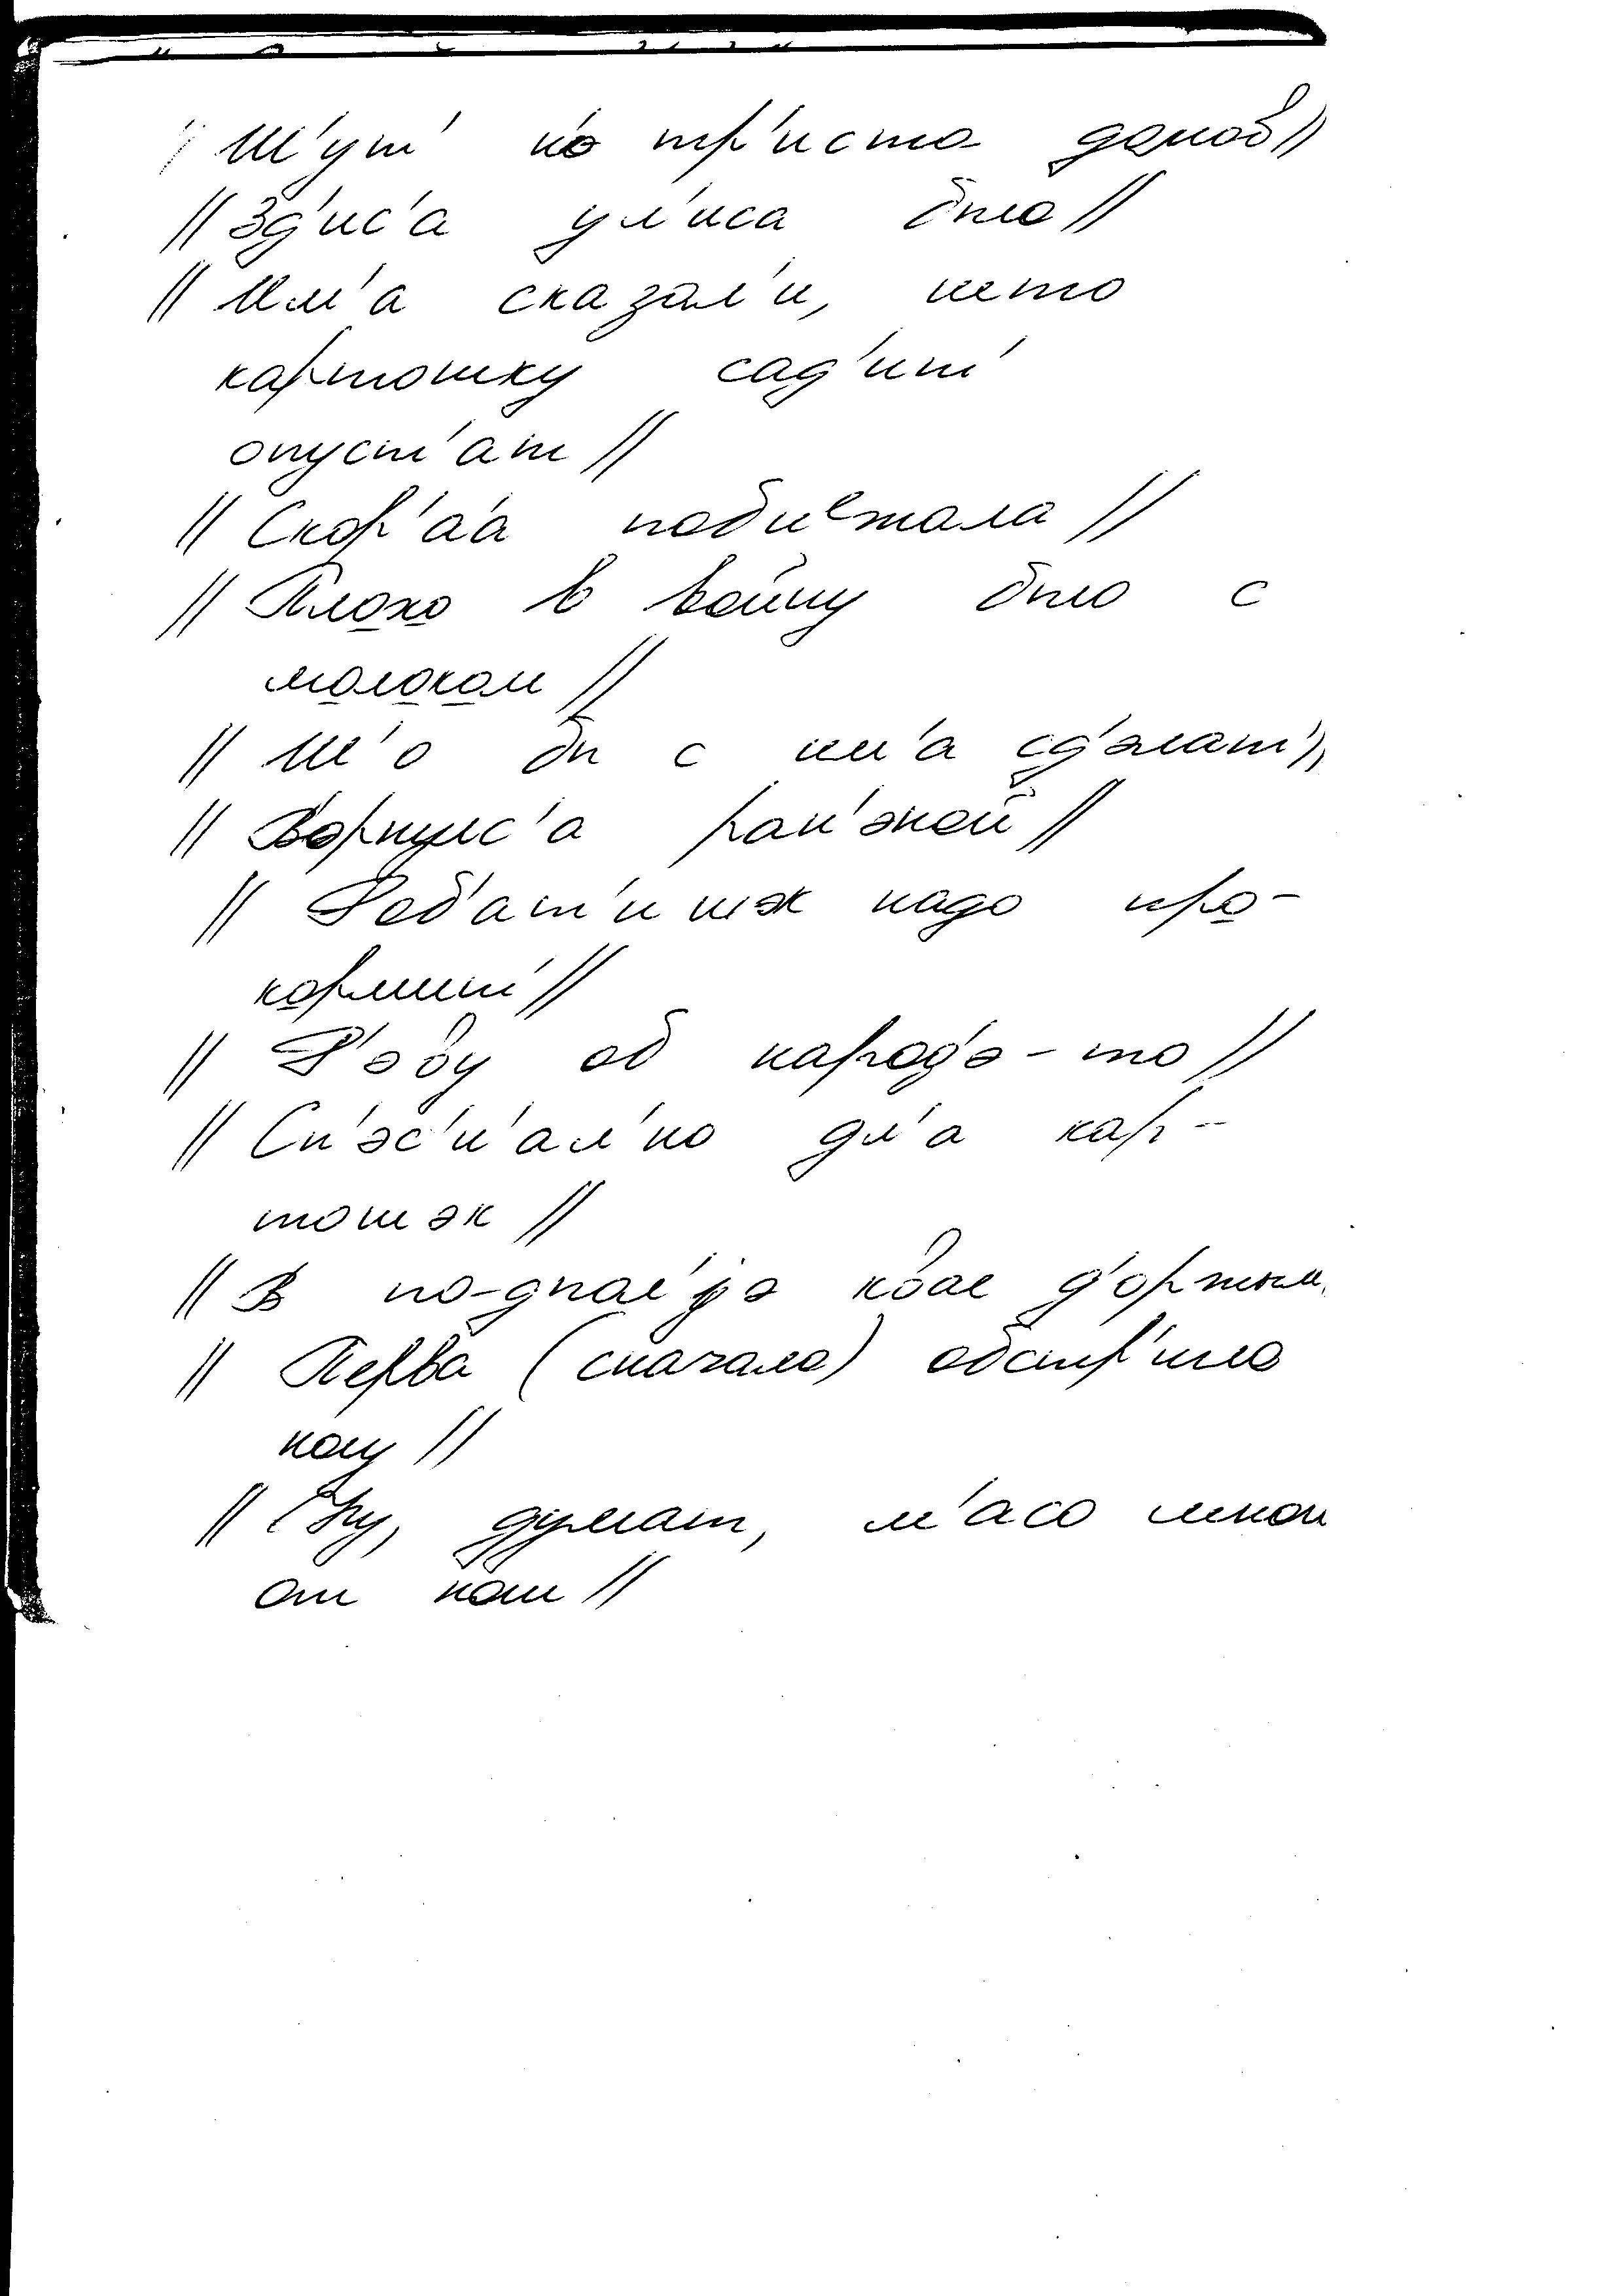 // Ш'ут' н'э тр'иста дамоў //
// Зд'ис'а ул'иса была //
// Им'а сказал'и, што
картошку сад'ит'
опуст'ат //
// Скор'аа побиᵉжала //
// Плохо в войну было с
молоком //
// Ш'о бы с им'а сд'элат' //
// В'орнулс'а ран'эной //
// Р'еб'ат'ишэк надо про-
кормит' //
// Р'эву об народ'э-то //
// Сп'эс'и'ал'но дл'а кар-
тошэк //
// В по-дпол'jэ квас д'оржым
// Перва (сначала) обстр'игла
кошу //
// Ну, думат, м'асо
от кош //